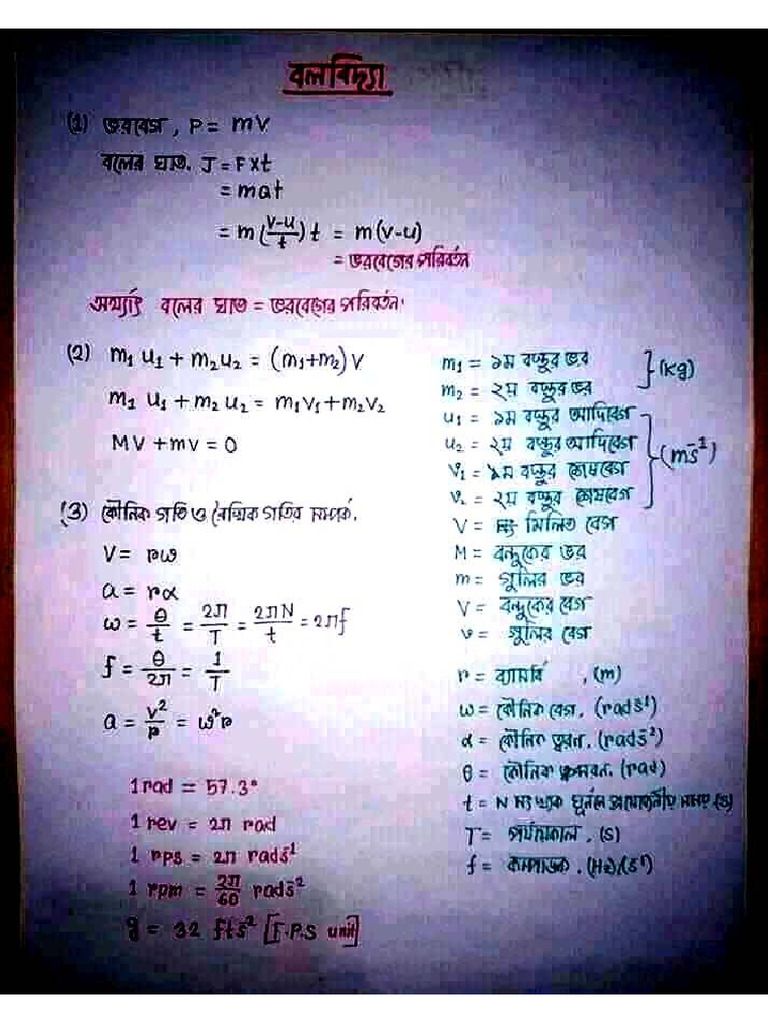 বলবিদ্যা
(1) ভরবেগ, P = mv
বলের ঘাত. J = F×t
= mat
= m(\frac{v-u}{t})t = m(v-u)
= ভরবেগের পরিবর্তন
অর্থ্যাৎ বলের ঘাত = ভরবেগের পরিবর্তন।
(2) m₁u₁ + m₂u₂ = (m₁+m₂)V
m₁u₁ + m₂u₂ = m₁v₁ + m₂v₂
MV + mv = 0
m₁ = ১ম বস্তুর ভর
m₂ = ২য় বস্তুর ভর } (kg)
u₁ = ১ম বস্তুর আদিবেগ
u₂ = ২য় বস্তুর আদিবেগ
v₁ = ১ম বস্তুর শেষবেগ } (ms⁻¹)
v₂ = ২য় বস্তুর শেষবেগ
V = মিলিত বেগ
M = বন্দুকের ভর
m = গুলির ভর
V = বন্দুকের বেগ
v = গুলির বেগ
(3) কৌনিক গতি ও রৈখিক গতির সম্পর্ক.
V = rω
a = rα
ω = \frac{θ}{t} = \frac{2π}{T} = \frac{2πN}{t} = 2πf
f = \frac{θ}{2π} = \frac{1}{T}
a = \frac{v²}{r} = ω²r
r = ব্যাসার্ধ , (m)
ω = কৌনিক বেগ. (rads⁻¹)
α = কৌনিক ত্বরন. (rads⁻²)
θ = কৌনিক (rad)
t = N সংখ্যক ঘূর্নলে প্রয়োজনীয় সময় (s)
T = পর্যায়কাল . (s)
f = কম্পাঙ্ক . (Hz)/(s⁻¹)
1 rad = 57.3°
1 rev = 2π rad
1 rps = 2π rads⁻¹
1 rpm = \frac{2π}{60} rads⁻²
g = 32 fts⁻² [F.P.S unit]